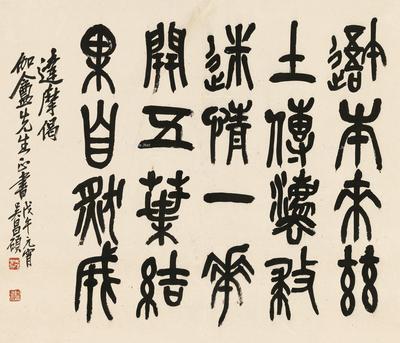 吾本來茲
土傳灋救
迷情一華
開五葉結
果自然成
達摩偈
伽盦先生正書 戊午元宵
吳昌碩